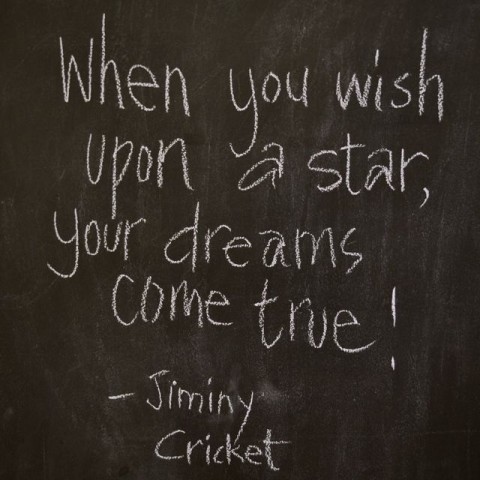 When you wish
upon a star,
your dreams
come true!
- Jiminy
Cricket